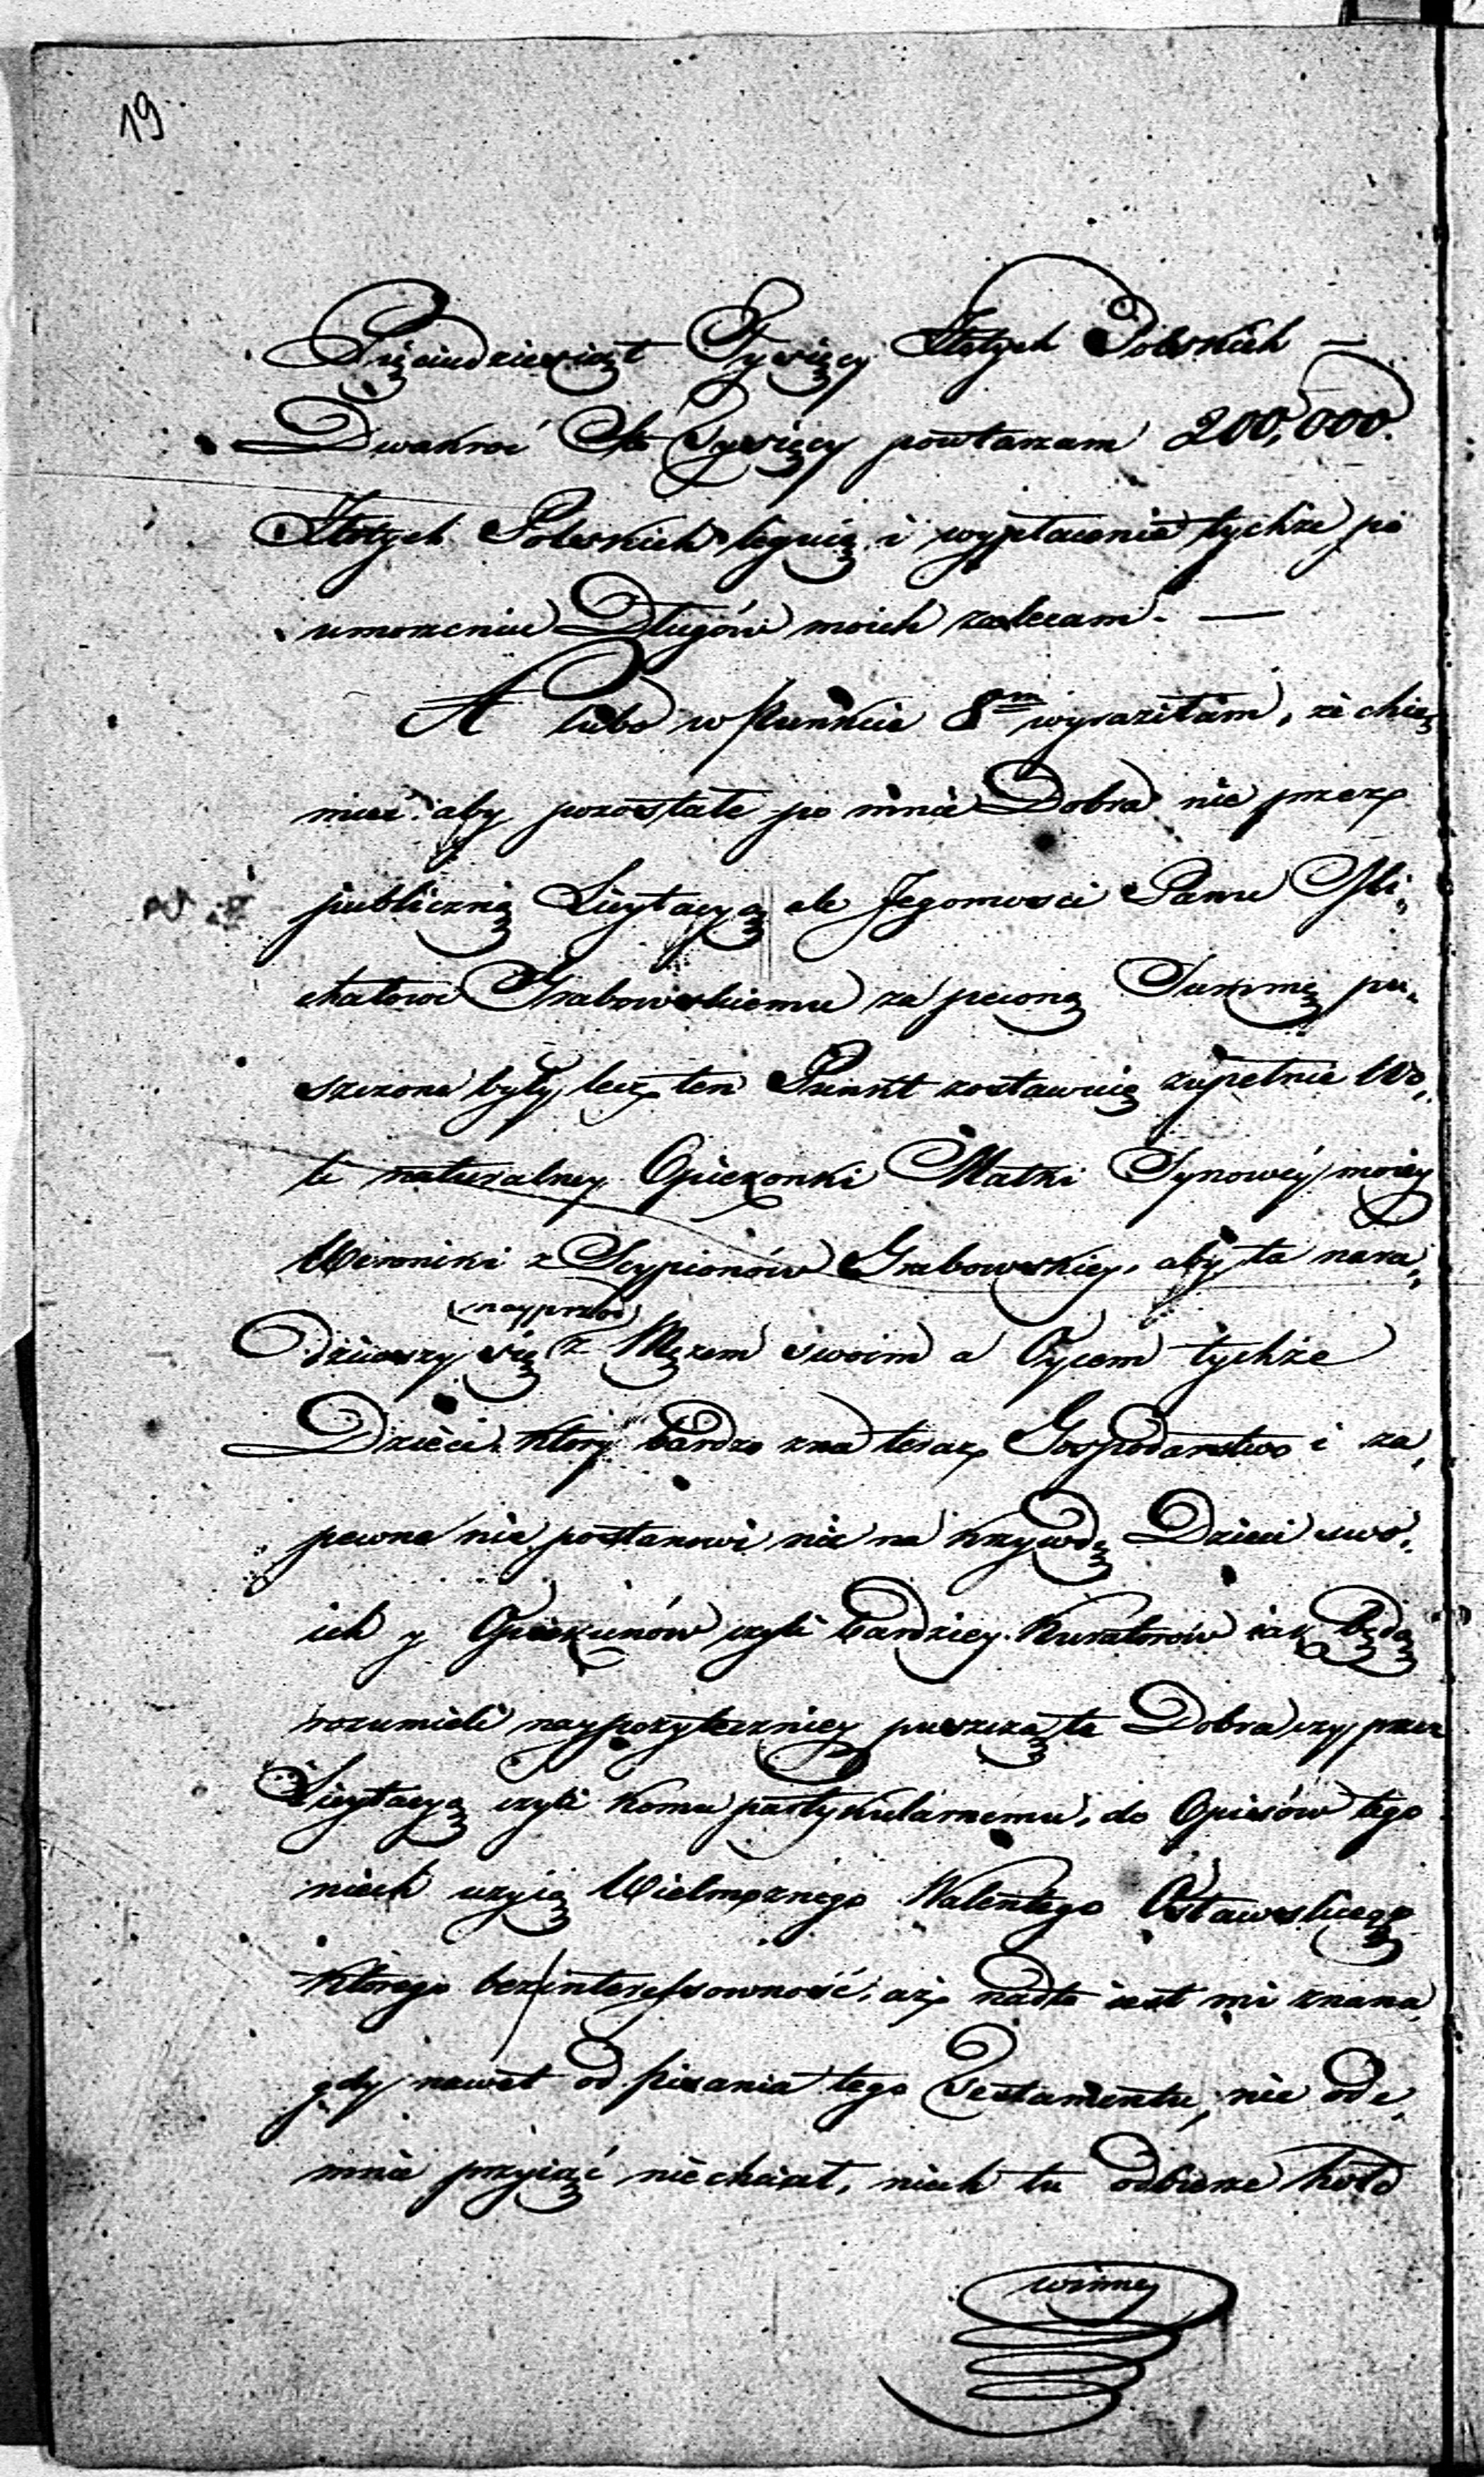 19
Pięciudziesiąt Tysięcy Złotych Polskich —
Dwakroć Sto Tysięcy powtarzam 200,000.
Złotych Polskich leguię i wypłacenie tychże po
umorzeniu Długów moich zalecam. —
A lubo w Punkcie 8m wyraziłam, że chcę
mieć aby pozostałe po mnie Dobra nie przez
publiczną Licytacyą ale Jegomości Panu Mi„
chałowi Grabowskiemu za pewną Summę pu„
szczone były, lecz ten Punkt zostawuię zupełnie Wo„
li naturalney Opiekonki Matki Synowéy moiey
Weroniki z Scypionów Grabowskiey, aby ta nara„
(nayprzód)
dziwszy się z Mężem swoim a Oycem tychże
Dzieci, który bardzo zna teraz Gospodarstwo i za„
pewne nie postanowi nic na krzywdę Dzieci swo„
ich y Opiekunów czyli bardziey Kuratorów iak będą
rozumieli naypożyteczniey puszczą te Dobra czy przez
Licytacyą czyli komu partykularnemu, do Opisów tego
niech użyią Wielmożnego Walentego Osławskiego
którego bezinteressowność, aż nadto iest mi znana,
gdy nawet od pisania tego Testamentu, nic ode„
mnie przyiąć niechciał, niech tu odbierze hołd
winny